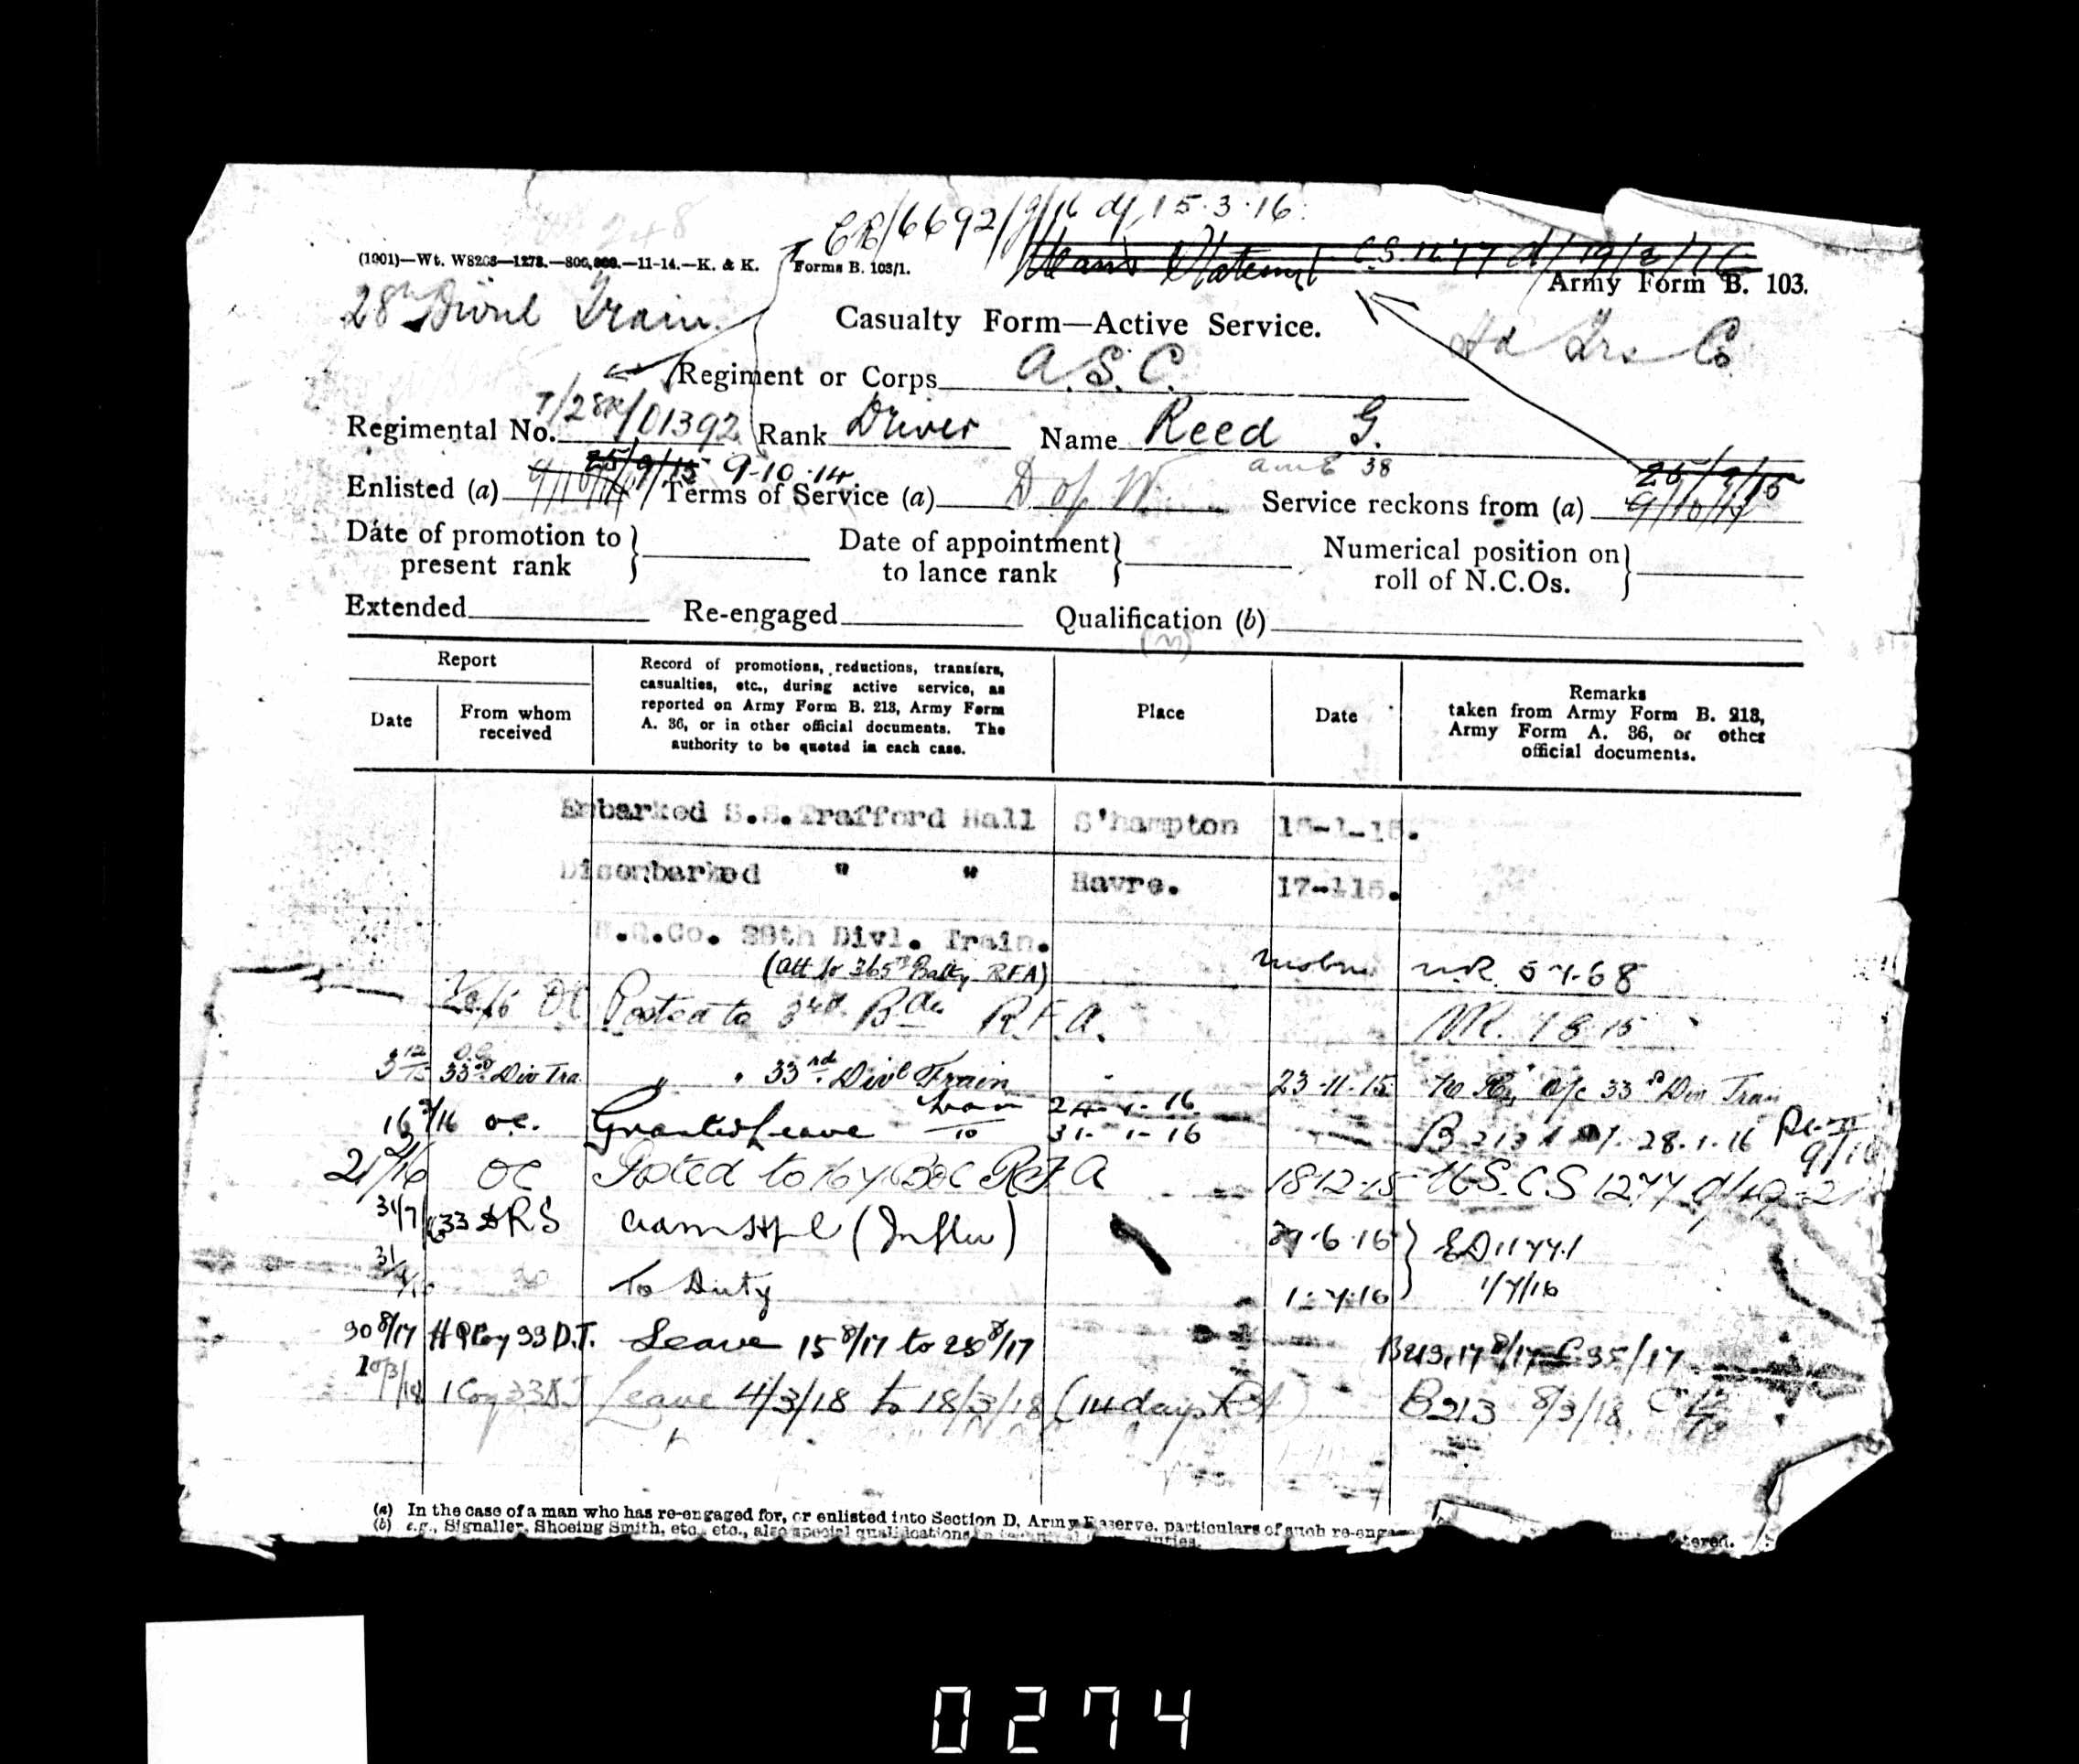 CR/6692/9/16 d/ 15.3.16.
(1901)—Wt. W8208—1273.—800,000.—11-14.—K. & K. Forms B. 103/1.
Man's Statement C.S. 1277 d/ 19/2/16
Army Form B. 103.
28th Divnl Train.
Casualty Form—Active Service.
Hd Qrs Co
Regiment or Corps A.S.C.
Regimental No. T/28R/01392 Rank Driver Name Reed G.
25/9/15 9-10-14
38
25/9/15
Enlisted (a) 9/10/14 Terms of Service (a) D of W. Service reckons from (a) 9/10/14
Date of promotion to present rank } Date of appointment to lance rank } Numerical position on roll of N.C.Os. }
Extended Re-engaged Qualification (b)
Report
Date
From whom received
Record of promotions, reductions, transfers, casualties, etc., during active service, as reported on Army Form B. 213, Army Form A. 36, or in other official documents. The authority to be quoted in each case.
Place
Date
Remarks taken from Army Form B. 213, Army Form A. 36, or other official documents.
Embarked S.S. Trafford Hall S'hampton 15-1-15.
Disembarked " " Havre. 17-115.
H.Q.Co. 28th Divl. Train.
(att to 365th Batty RFA)
OC Posted to 3rd Bde R.F.A.
3 12/15 O.C. 33rd Div Tra. " " 33rd Divl Train 23-11-15 O/c 33rd Div Train
16 2/16 OC. Granted Leave 24-1-16 31-1-16 B 213 28.1.16
21/2/16 OC Posted to 167 Bde RFA 18-12-15
31/7 33 DRS adm Hpl (Influ) 6.16 } ED 11771
To Duty 1.7.16 } 1/7/16
30 8/17 HQ Coy 33 D.T. Leave 15 8/17 to 25 8/17 B213, 17 8/17 C 35/17
10/3/18 1 Coy 33 DT Leave 4/3/18 to 18/3/18 (14 days B213 8/3/18
(a) In the case of a man who has re-engaged for, or enlisted into Section D. Army Reserve, particulars of such re-enga
(b) e.g., Signaller, Shoeing Smith, etc., etc., also special qualifications
0274